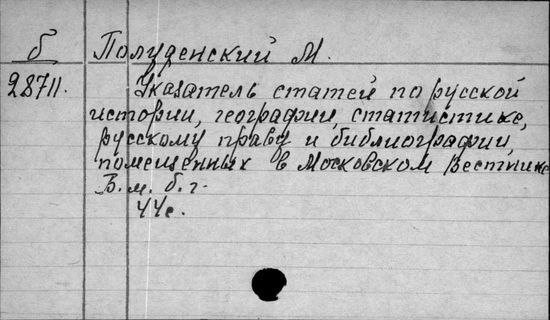 б Полуденский М.
28711. Указатель статей по русской
истории, географии, статистике,
русскому праву и библиографии,
помещенных в Московском Вестнике
Б.м. б.г.
44с.